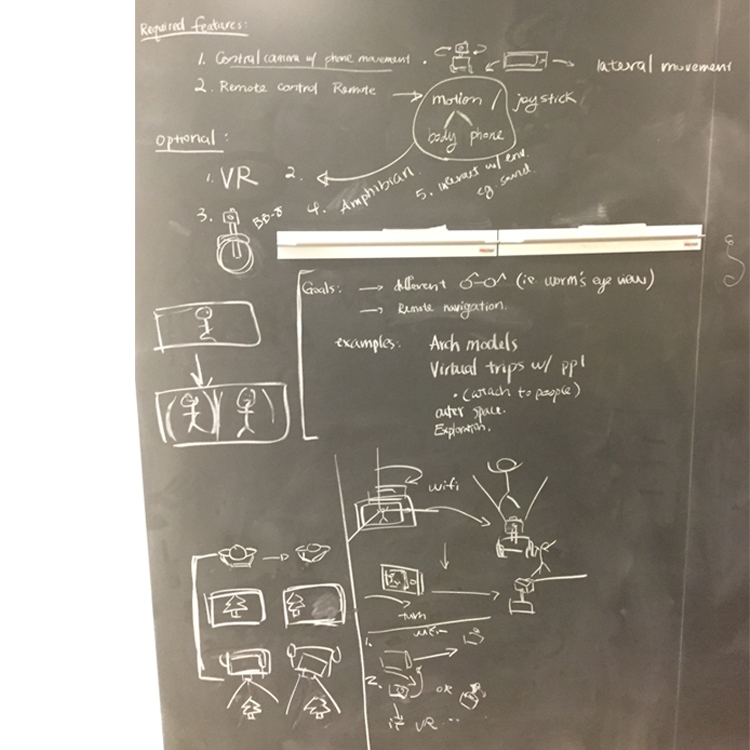 Required features:
1. Control camera w/ phone movement.
lateral movement
2. Remote control Remote → motion / joystick
body phone
Optional:
1. VR 2.
3. BB-8 4. Amphibian. 5. interact w/ env.
eg. sound.
Goals: → different (ie. worm's eye view)
→ Remote navigation.
examples: Arch models
Virtual trips w/ ppl
• (attach to people)
outer space.
Exploration.
wifi
turn
1.
2.
OR
VR ...